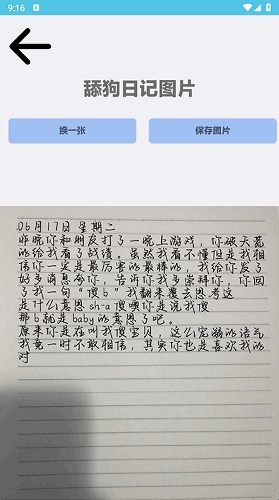 9:16
舔狗日记图片
换一张
保存图片
06月17日星期二
昨晚你和朋友打了一晚上游戏，你破天荒
的给我看了战绩。虽然我看不懂但是我相
信你一定是最厉害的最棒的，我给你发了
好多消息夸你，告诉你我多崇拜你，你回
了我一句“傻b”我翻来覆去思考这
是什么意思sh-a傻噢你是说我傻
那b就是baby的意思了吧。
原来你是在叫我傻宝贝，这么宠溺的语气
我竟一时不敢相信，其实你也是喜欢我的
对